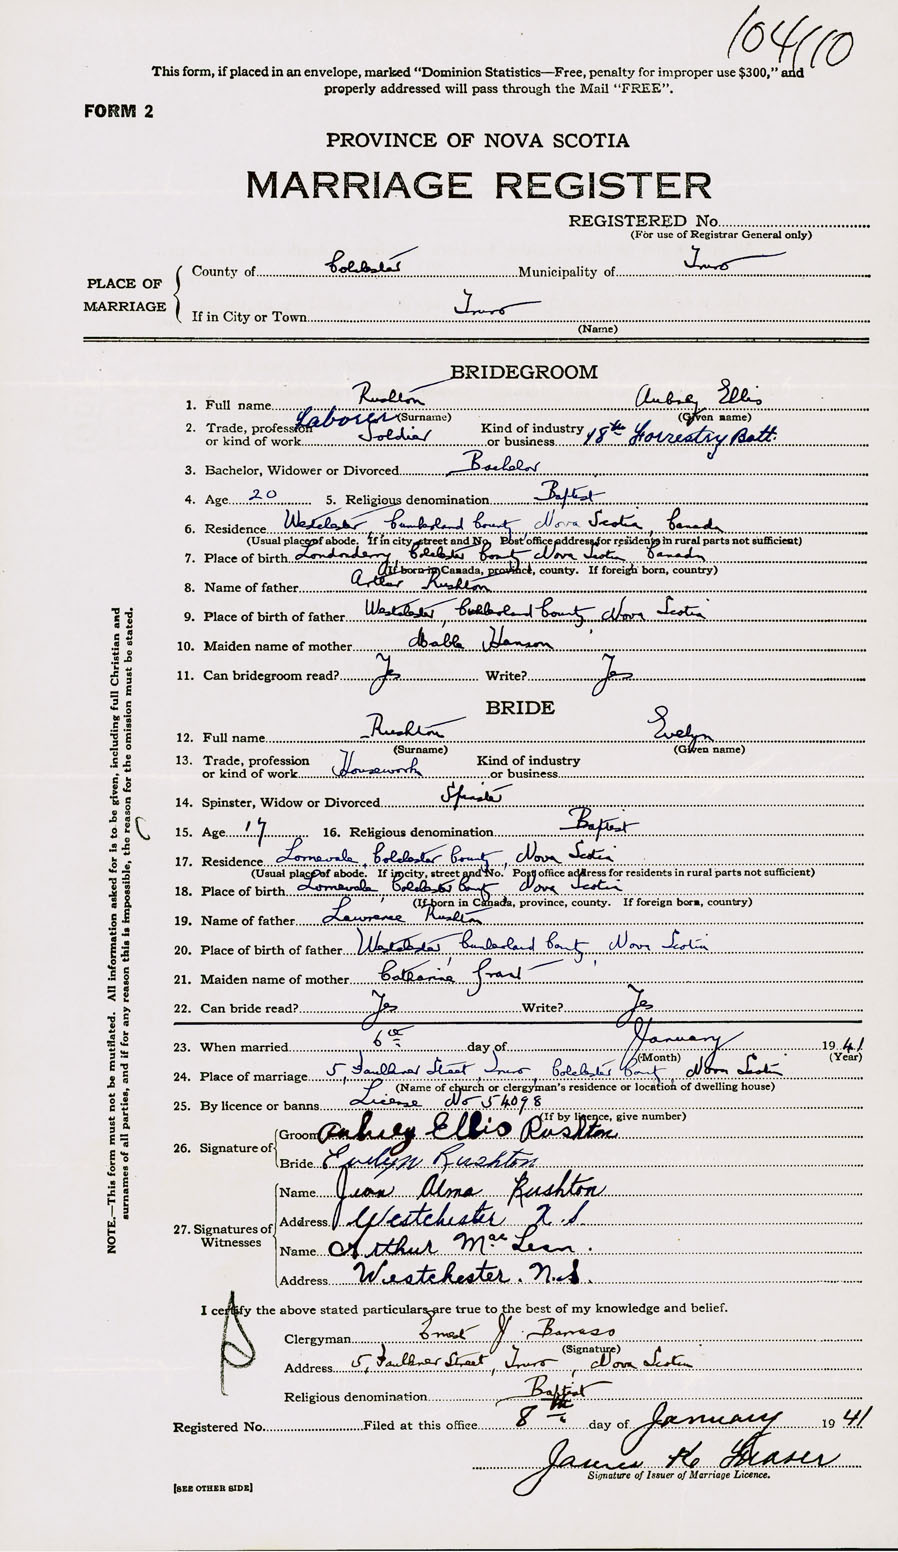 104110
This form, if placed in an envelope, marked “Dominion Statistics—Free, penalty for improper use $300,” and
properly addressed will pass through the Mail “FREE”.
FORM 2
PROVINCE OF NOVA SCOTIA
MARRIAGE REGISTER
REGISTERED No.
(For use of Registrar General only)
PLACE OF MARRIAGE
County of Colchester Municipality of Truro
If in City or Town Truro
(Name)
BRIDEGROOM
1. Full name Rushton Aubrey Ellis
(Surname) (Given name)
2. Trade, profession or kind of work Laborer Soldier Kind of industry or business 18th Forrestry Batt.
3. Bachelor, Widower or Divorced Bachelor
4. Age 20 5. Religious denomination Baptist
6. Residence Westchester Cumberland County, Nova Scotia, Canada
(Usual place of abode. If in city, street and No. Post office address for residents in rural parts not sufficient)
7. Place of birth Londonderry Colchester County Nova Scotia Canada
(If born in Canada, province, county. If foreign born, country)
8. Name of father Arthur Rushton
9. Place of birth of father Westchester, Cumberland County, Nova Scotia
10. Maiden name of mother Hanson
11. Can bridegroom read? Yes Write? Yes
BRIDE
12. Full name Rushton Evelyn
(Surname) (Given name)
13. Trade, profession or kind of work Housework Kind of industry or business
14. Spinster, Widow or Divorced Spinster
15. Age 17 16. Religious denomination Baptist
17. Residence Lornevale, Colchester County, Nova Scotia
(Usual place of abode. If in city, street and No. Post office address for residents in rural parts not sufficient)
18. Place of birth Lornevale, Colchester County Nova Scotia
(If born in Canada, province, county. If foreign born, country)
19. Name of father Lawrence Rushton
20. Place of birth of father Westchester, Cumberland County, Nova Scotia
21. Maiden name of mother Catharine Grant
22. Can bride read? Yes Write? Yes
23. When married 6th day of January 1941
(Month) (Year)
24. Place of marriage 5, Faulkner Street, Truro, Colchester County, Nova Scotia
(Name of church or clergyman's residence or location of dwelling house)
25. By licence or banns License No 54098
(If by licence, give number)
26. Signature of
Groom Aubrey Ellis Rushton
Bride Evelyn Rushton
27. Signatures of Witnesses
Name Jean Alma Rushton
Address Westchester N.S.
Name Arthur MacLean.
Address Westchester. N.S.
I certify the above stated particulars are true to the best of my knowledge and belief.
Clergyman Ernest J. Barrass
(Signature)
Address 5, Faulkner Street, Truro, Nova Scotia
Religious denomination Baptist
Registered No. Filed at this office 8th day of January 1941
James K Fraser
Signature of Issuer of Marriage Licence.
[SEE OTHER SIDE]
NOTE.—This form must not be mutilated. All information asked for is to be given, including full Christian and
surnames of all parties, and if for any reason this is impossible, the reason for the omission must be stated.